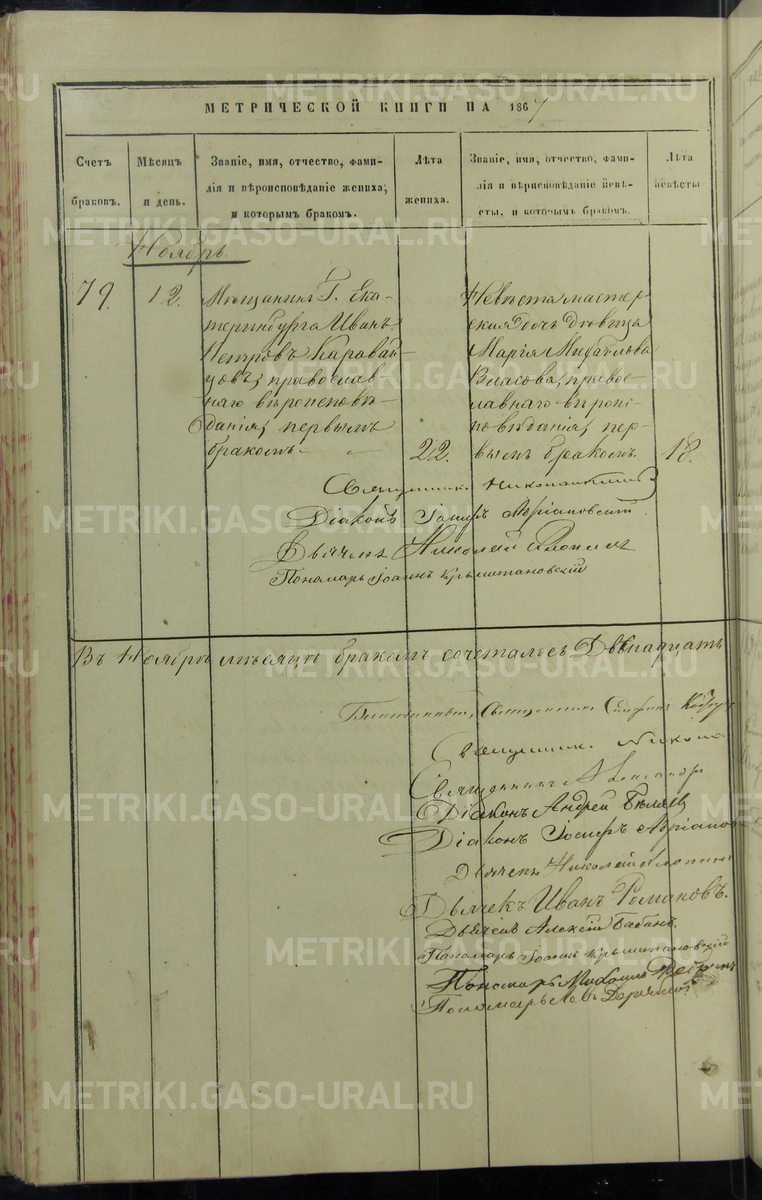 МЕТРИЧЕСКОЙ КНИГИ НА 1867
Счетъ браковъ.
Мѣсяцъ и день.
Званіе, имя, отчество, фами-
лія и вѣроисповѣданіе жениха,
и которымъ бракомъ.
Лѣта жениха.
Званіе, имя, отчество, фами-
лія и вѣроисповѣданіе невѣ-
сты, и которымъ бракомъ.
Лѣта невѣсты
Ноябрь.
79.
12.
Мѣщанинъ Г. Ека-
теринбурга Иванъ
Петровъ Каравай
цовъ, православ
наго вѣроисповѣ-
данія, первымъ
бракомъ
22.
Невѣста мастер
ская дочь дѣвица
Марія Михайлова
Власова, правос
лавнаго вѣроис-
повѣданія, пер-
вымъ бракомъ.
18.
Священникъ
Діаконъ Іосифъ Адріановскій.
Дьячекъ Николай
Пономарь Іоаннъ Крыштановскій
Въ Ноябрѣ мѣсяцѣ бракомъ сочеталось Двѣнадцать
Благочинный, Священникъ
Священникъ
Священникъ Александръ
Діаконъ Андрей Бѣляев
Діаконъ Іосифъ Адріанов
Дьячекъ Николай
Дьячекъ Иванъ Романовъ.
Дьячекъ Алексій Бабинъ.
Пономарь Іоаннъ Крыштановскій
Пономарь Михаилъ
Пономарь Левъ
METRIKI.GASO-URAL.RU